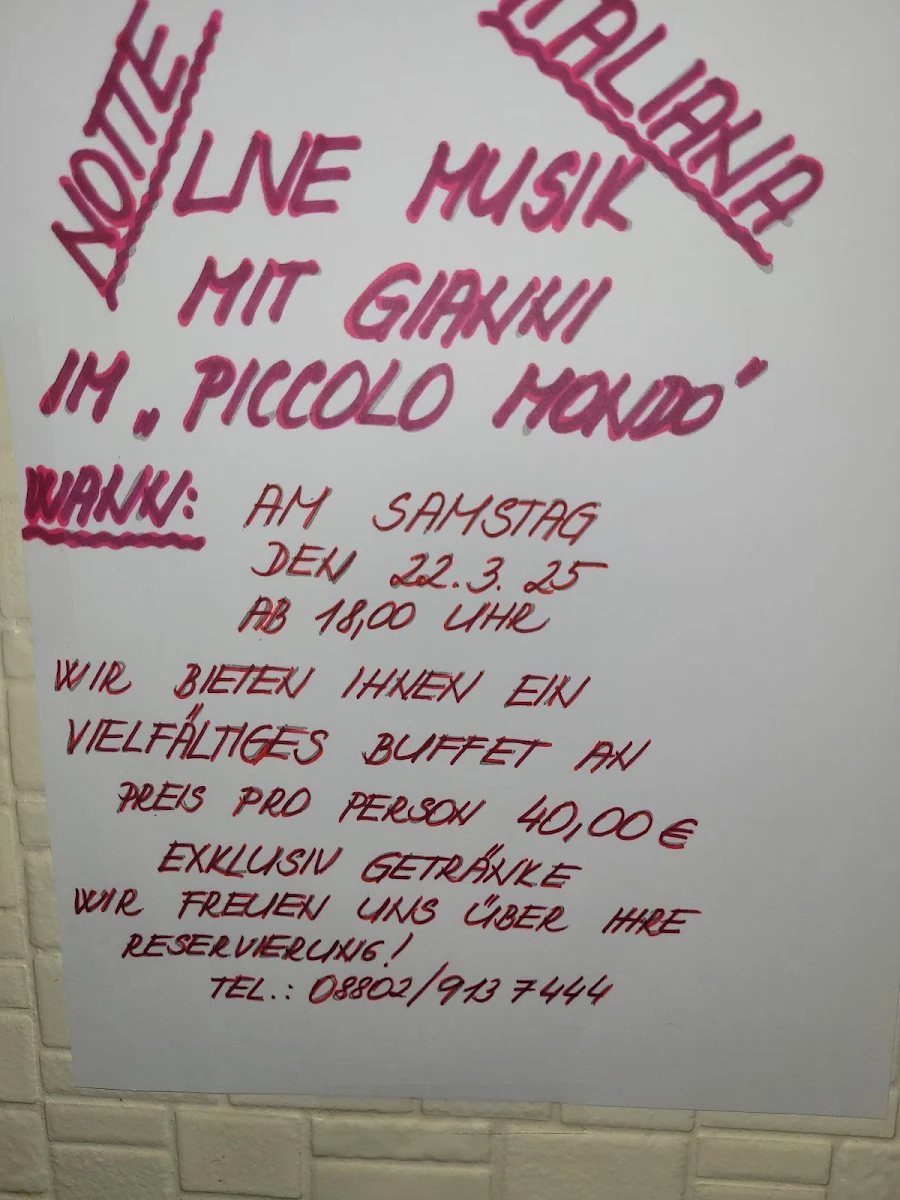 NOTTE
ITALIANA
LIVE MUSIK
MIT GIANNI
IM „PICCOLO MONDO"
WANN: AM SAMSTAG
DEN 22.3.25
AB 18,00 UHR
WIR BIETEN IHNEN EIN
VIELFÄLTIGES BUFFET AN
PREIS PRO PERSON 40,00 €
EXKLUSIV GETRÄNKE
WIR FREUEN UNS ÜBER IHRE
RESERVIERUNG!
TEL.: 08802/913 7444